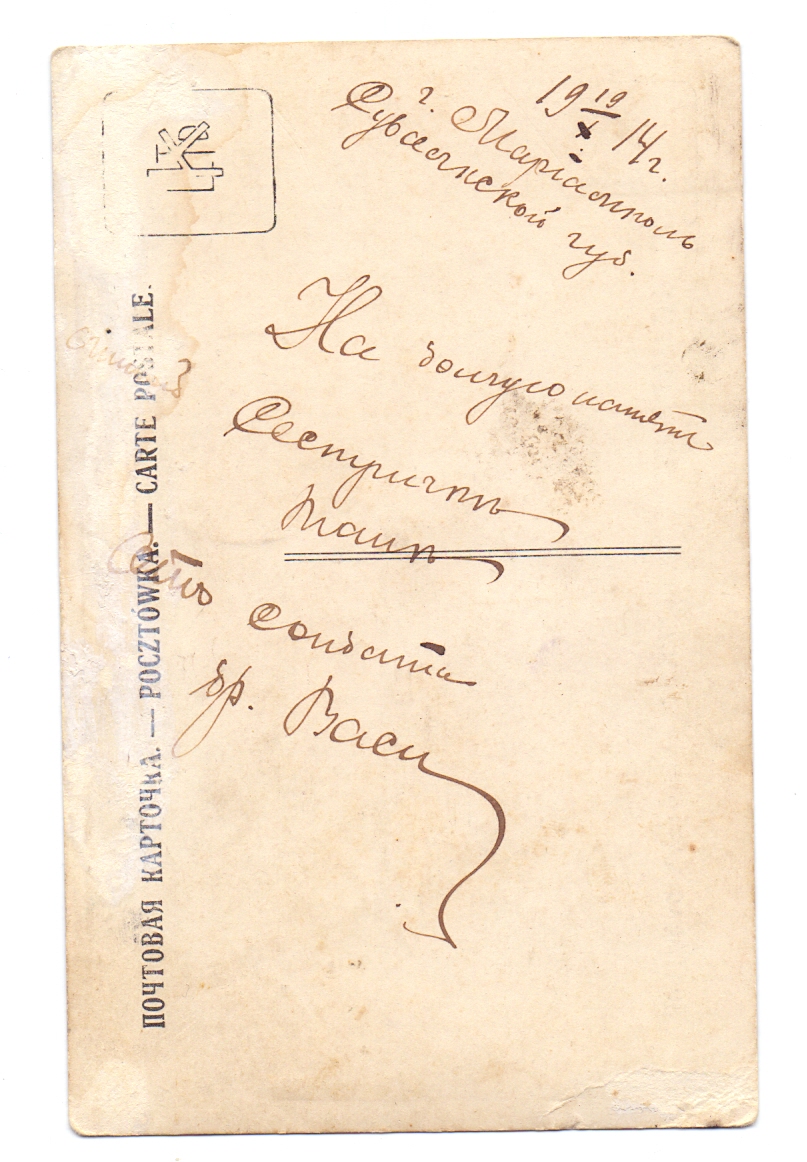 19 19/X 14 г.
г. Маріамполь
Сувалкской губ.
На долгую память
Сестричкѣ
Таѣ
отъ солдата
бр. Васи
ПОЧТОВАЯ КАРТОЧКА. — POCZTÓWKA. — CARTE POSTALE.